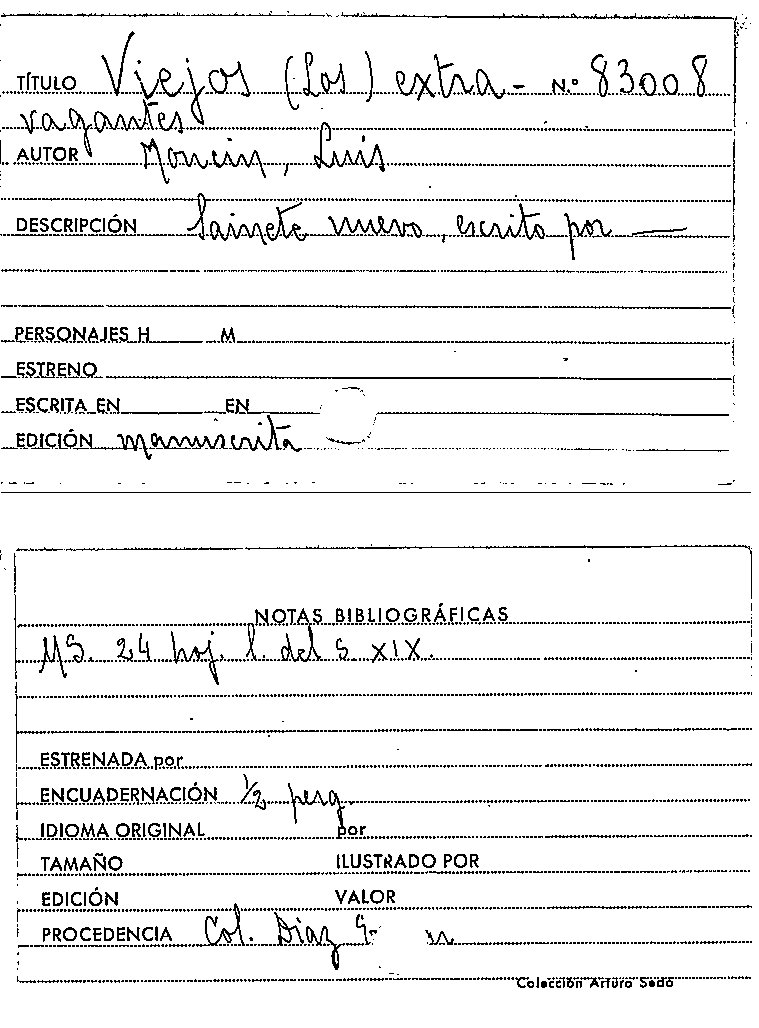 TÍTULO Viejos (Los) extra- N.º 83008
vagantes
AUTOR Moncin, Luis
DESCRIPCIÓN Sainete nuevo, escrito por —
PERSONAJES H M
ESTRENO
ESCRITA EN EN
EDICIÓN manuscrita
NOTAS BIBLIOGRÁFICAS
MS. 24 hoj. l. del s. XIX.
ESTRENADA por
ENCUADERNACIÓN ½ perg.
IDIOMA ORIGINAL por
TAMAÑO ILUSTRADO POR
EDICIÓN VALOR
PROCEDENCIA Col. Diaz
Colección Arturo Sedó